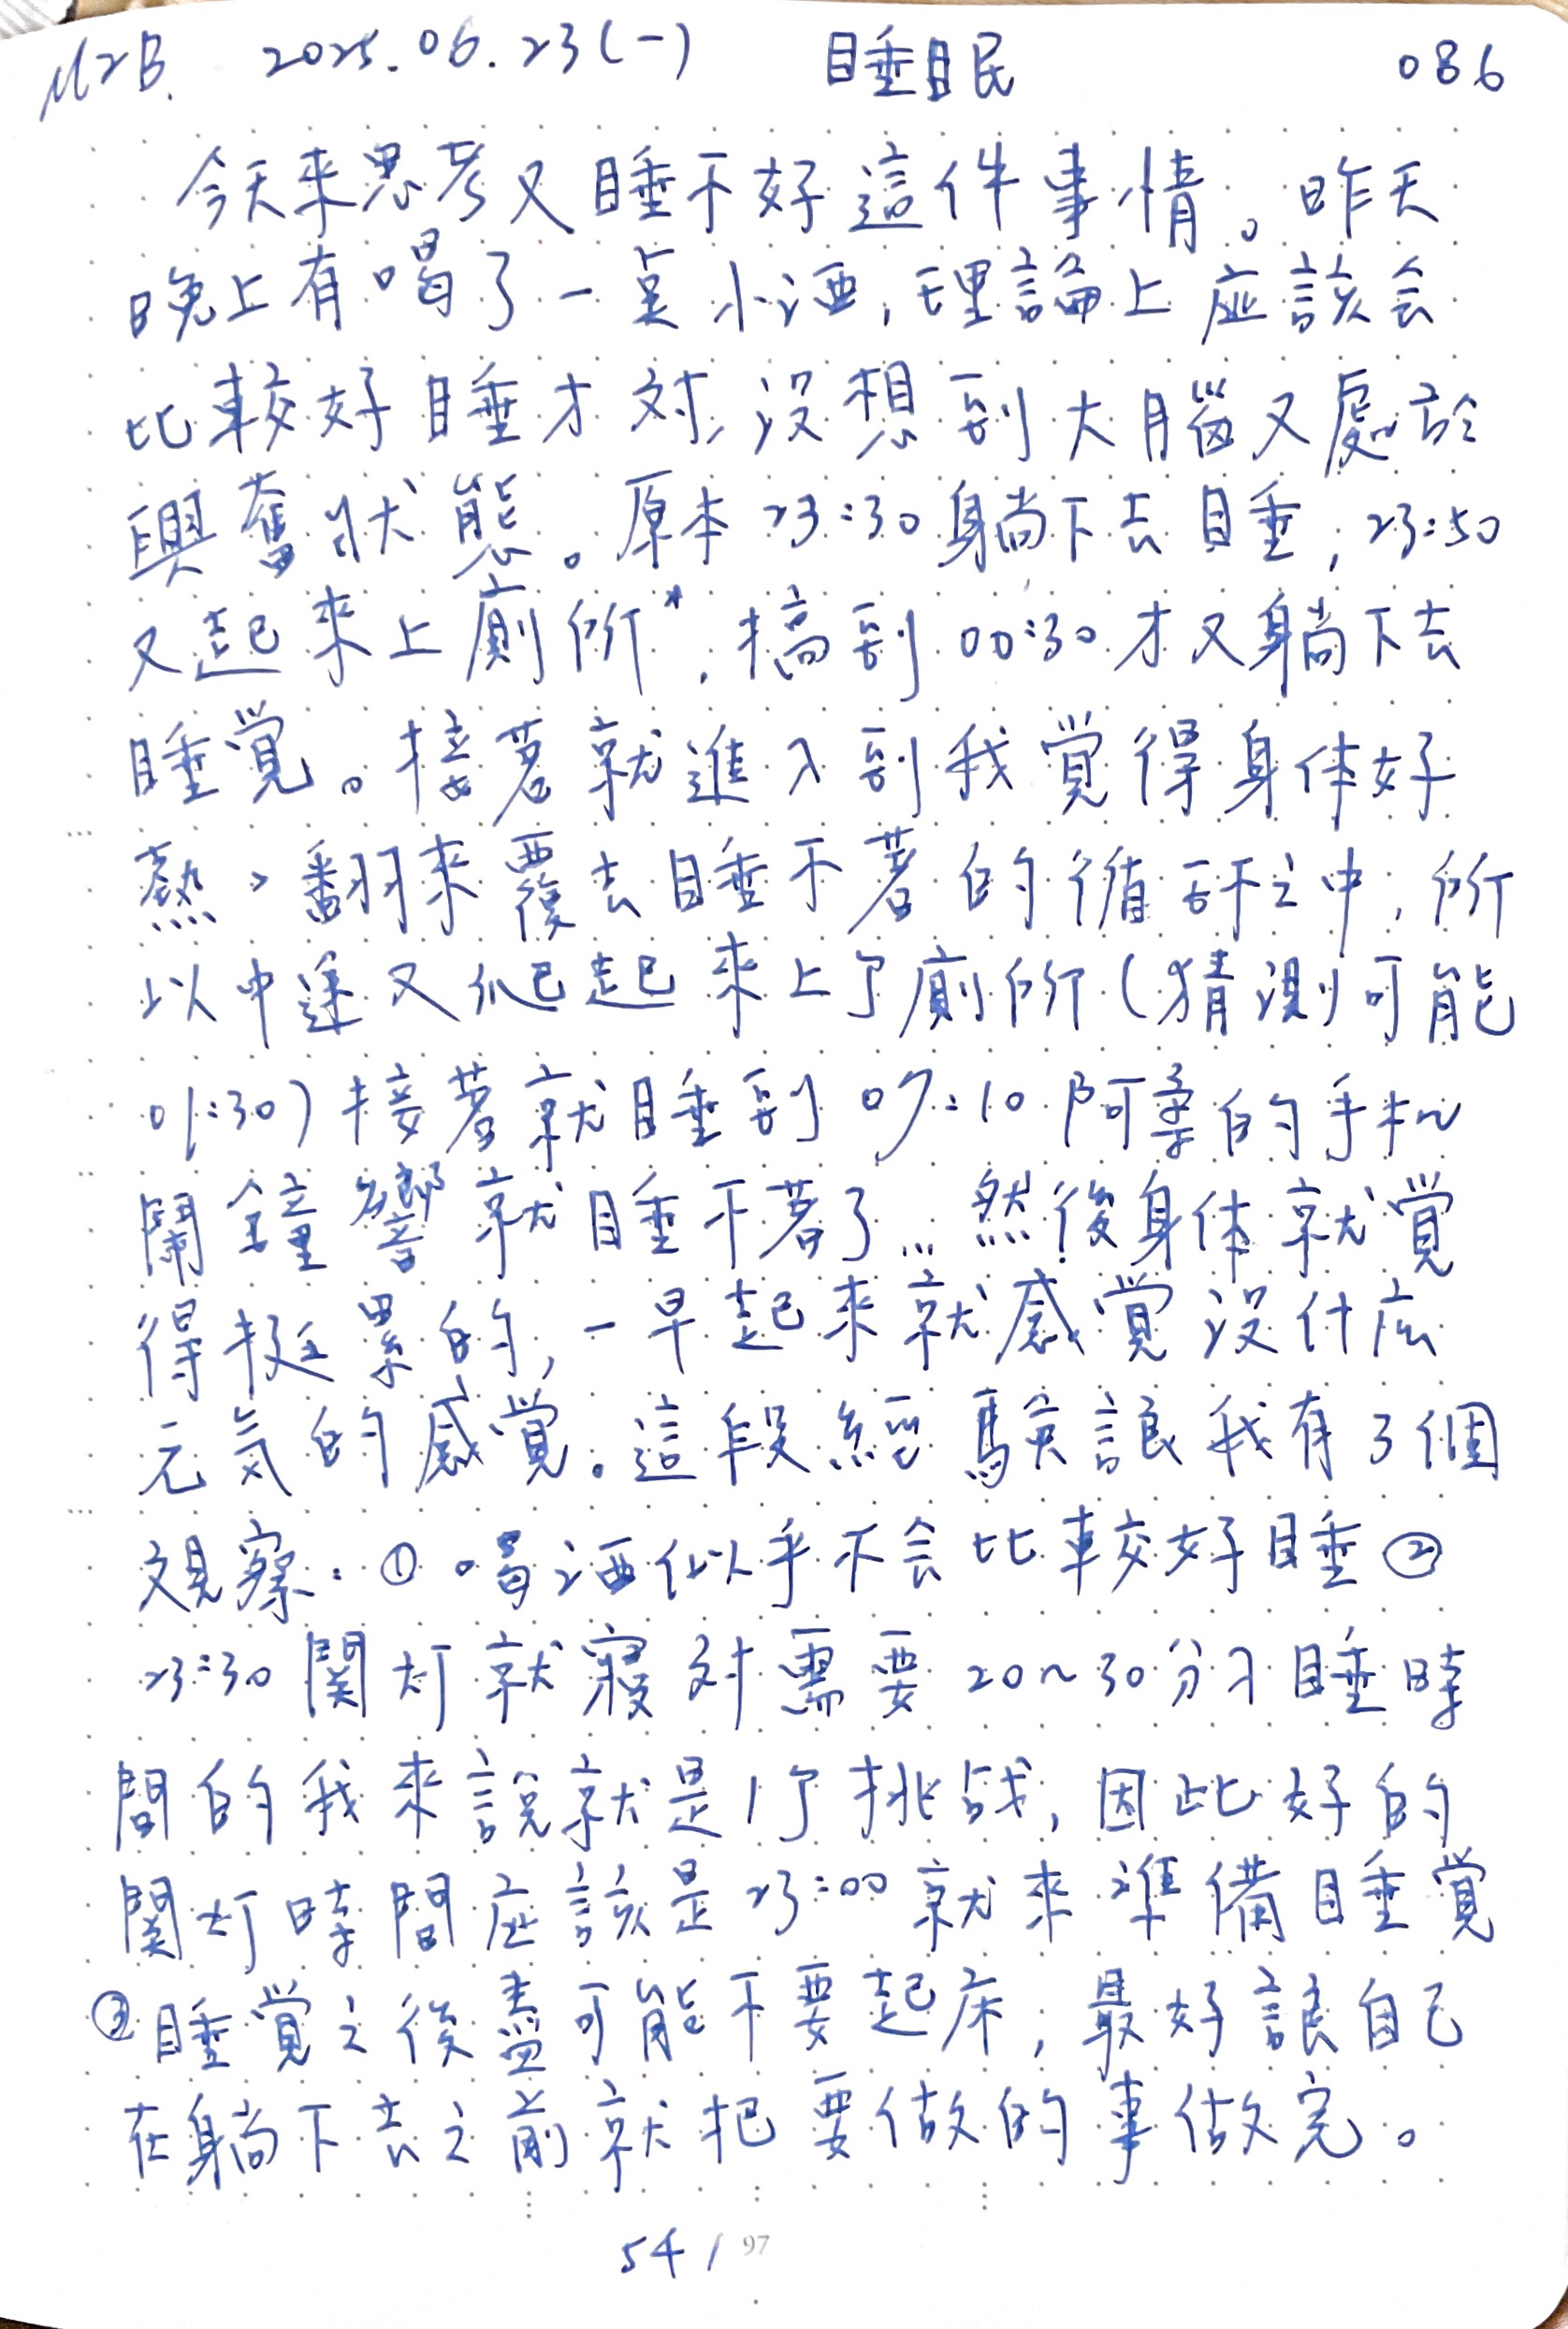 M2B. 2025.06.23(一) 睡眠 086
今天來思考又睡不好這件事情。昨天
晚上有喝了一点小酒,理論上应該会
比較好睡才対,没想到大腦又處於
興奮狀態。原本23:30躺下去睡,23:50
又起來上廁所*,搞到00:30才又躺下去
睡覚。接著就進入到我覚得身体好
熱、翻來覆去睡不著的循环之中,所
以中途又爬起來上了廁所(猜測可能
01:30)接著就睡到07:10阿柔的手机
鬧鐘響就睡不著了...然後身体就覚
得挺累的,一早起來就感覚没什庅
元気的感覚。這段經驗讓我有3個
观察.①喝酒似乎不会比較好睡②
23:30関灯就寢対需要20~30分入睡時
間的我來說就是1个挑战,因此好的
関灯時間应該是23:00就來準備睡覚
③睡覚之後盡可能不要起床,最好讓自己
在躺下去之前就把要做的事做完。
54/97